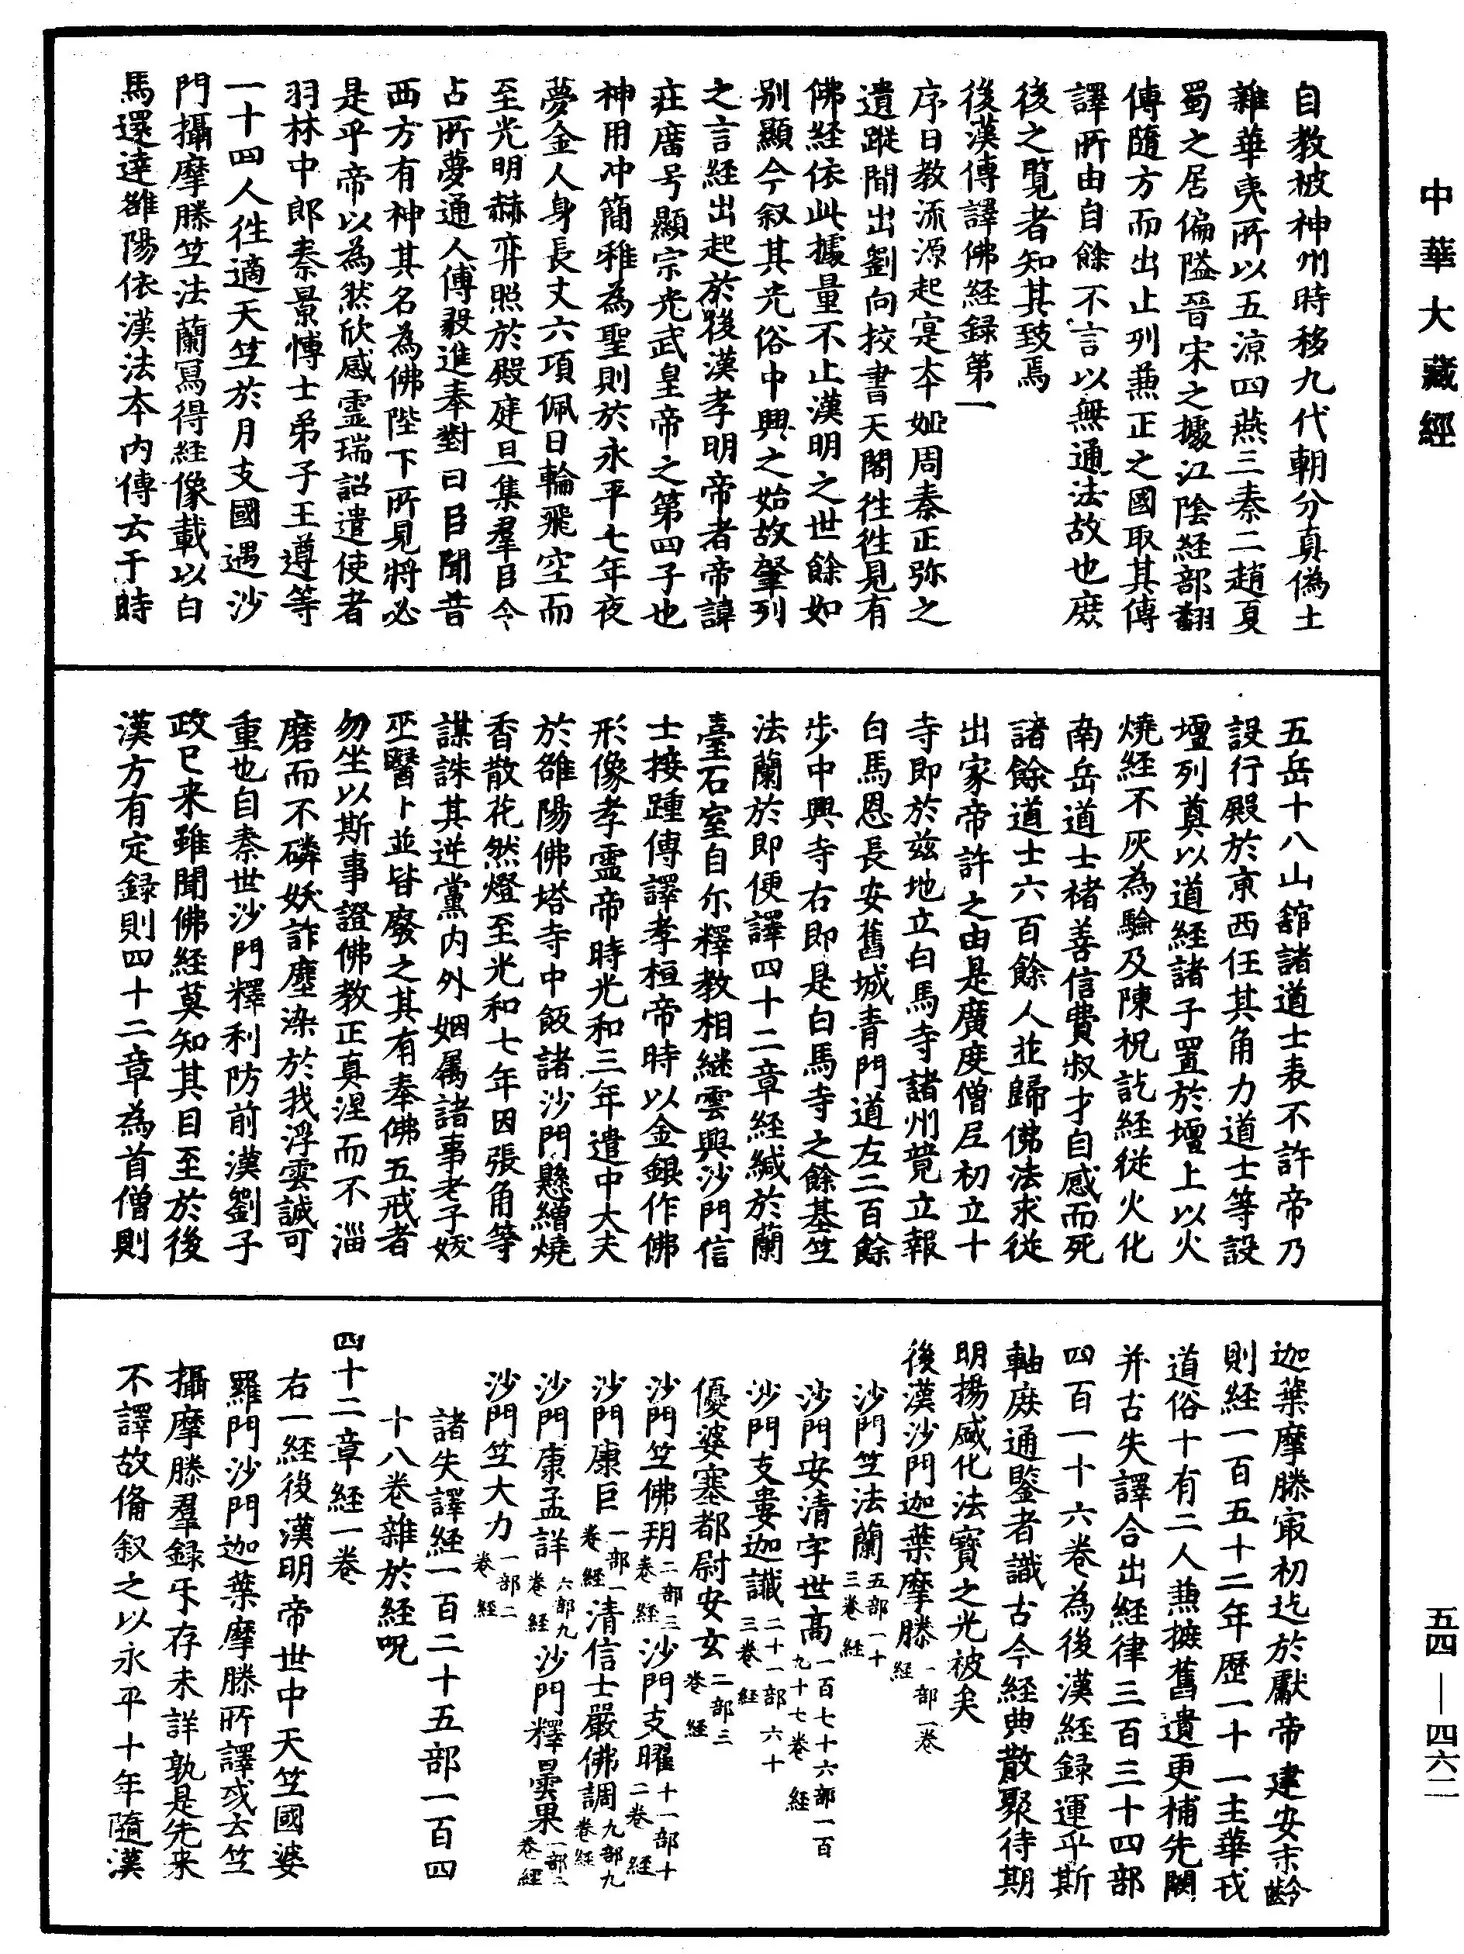 中華大藏經
自教被神州時移九代朝分真偽土
雜華夷所以五涼四燕三秦二趙夏
蜀之居偏隘晉宋之據江陰經部翻
傳隨方而出止列兼正之國取其傳
譯所由自餘不言以無通法故也庶
後之覽者知其致焉
後漢傳譯佛經録第一
序曰教流源起寔夲姬周秦正弥之
遺蹤間出劉向挍書天閣往往見有
佛經依此據量不止漢明之世餘如
别顯今叙其光俗中興之始故肇列
之言經出起於後漢孝明帝者帝諱
莊廟号顯宗光武皇帝之第四子也
神用冲簡雅為聖則於永平七年夜
夢金人身長丈六項佩日輪飛空而
至光明赫弈照於殿庭旦集羣臣令
占所夢通人傅毅進奉對曰臣聞昔
西方有神其名為佛陛下所見將必
是乎帝以為然欣感霊瑞詔遣使者
羽林中郎秦景愽士弟子王遵等
一十四人往適天竺於月支國遇沙
門攝摩騰竺法蘭寫得経像載以白
馬還達雒陽依漢法夲内傳云于時
五岳十八山舘諸道士表不許帝乃
設行殿於亰西任其角力道士等設
壇列奠以道經諸子置於壇上以火
燒經不灰為驗及陳祝訖経從火化
南岳道士禇善信費叔才自感而死
諸餘道士六百餘人並歸佛法求從
出家帝許之由是廣度僧尼初立十
寺即於兹地立白馬寺諸州競立報
白馬恩長安舊城青門道左二百餘
步中興寺右即是白馬寺之餘基竺
法蘭於即便譯四十二章經緘於蘭
臺石室自尒釋教相継雲興沙門信
士接踵傳譯孝桓帝時以金銀作佛
形像孝霊帝時光和三年遣中大夫
於雒陽佛塔寺中飯諸沙門懸繒燒
香散花然燈至光和七年因張角等
謀誅其逆黨内外姻属諸事老子妖
巫醫卜並皆廢之其有奉佛五戒者
勿坐以斯事證佛教正真涅而不淄
磨而不磷妖詐塵染於我浮雲誠可
重也自秦世沙門釋利防前漢劉子
政已来雖聞佛經莫知其目至於後
漢方有定録則四十二章為首僧則
迦葉摩騰宼初迄於獻帝建安末齡
則経一百五十二年歷一十一主華戎
道俗十有二人兼摭舊遺更補先闕
并古失譯合出經律三百三十四部
四百一十六卷為後漢経録運乎斯
軸庶通鑒者識古今經典散聚待期
明揚盛化法寶之光被矣
後漢沙門迦葉摩騰一部一卷經
沙門竺法蘭五部一十三卷經
沙門安清字世高一百七十六部一百九十七卷經
沙門支婁迦讖二十一部六十三卷經
優婆塞都尉安玄二部三卷經
沙門竺佛朔二部三卷經 沙門支曜十一部十二卷經
沙門康巨一部一卷經 清信士嚴佛調九部九卷經
沙門康孟詳六部九卷經 沙門釋曇果一部二卷經
沙門竺大力一部二卷經
諸失譯経一百二十五部一百四
十八卷雜於經呪
四十二章経一卷
右一経後漢明帝世中天竺國婆
羅門沙門迦葉摩騰所譯或云竺
攝摩騰羣録互存未詳孰是先来
不譯故俻叙之以永平十年隨漢
五四—四六二